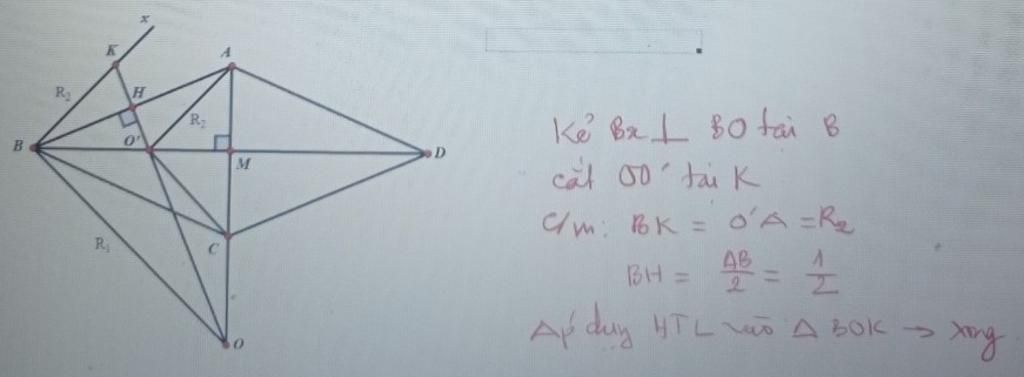 x
K
A
R₂
H
R₂
B
O'
M
D
R₁
C
O
Kẻ Bx ⊥ BO tại B
cắt OO' tại K
C/m: BK = O'A = R₂
BH = AB/2 = 1/2
Áp dụng HTL vào Δ BOK → xong